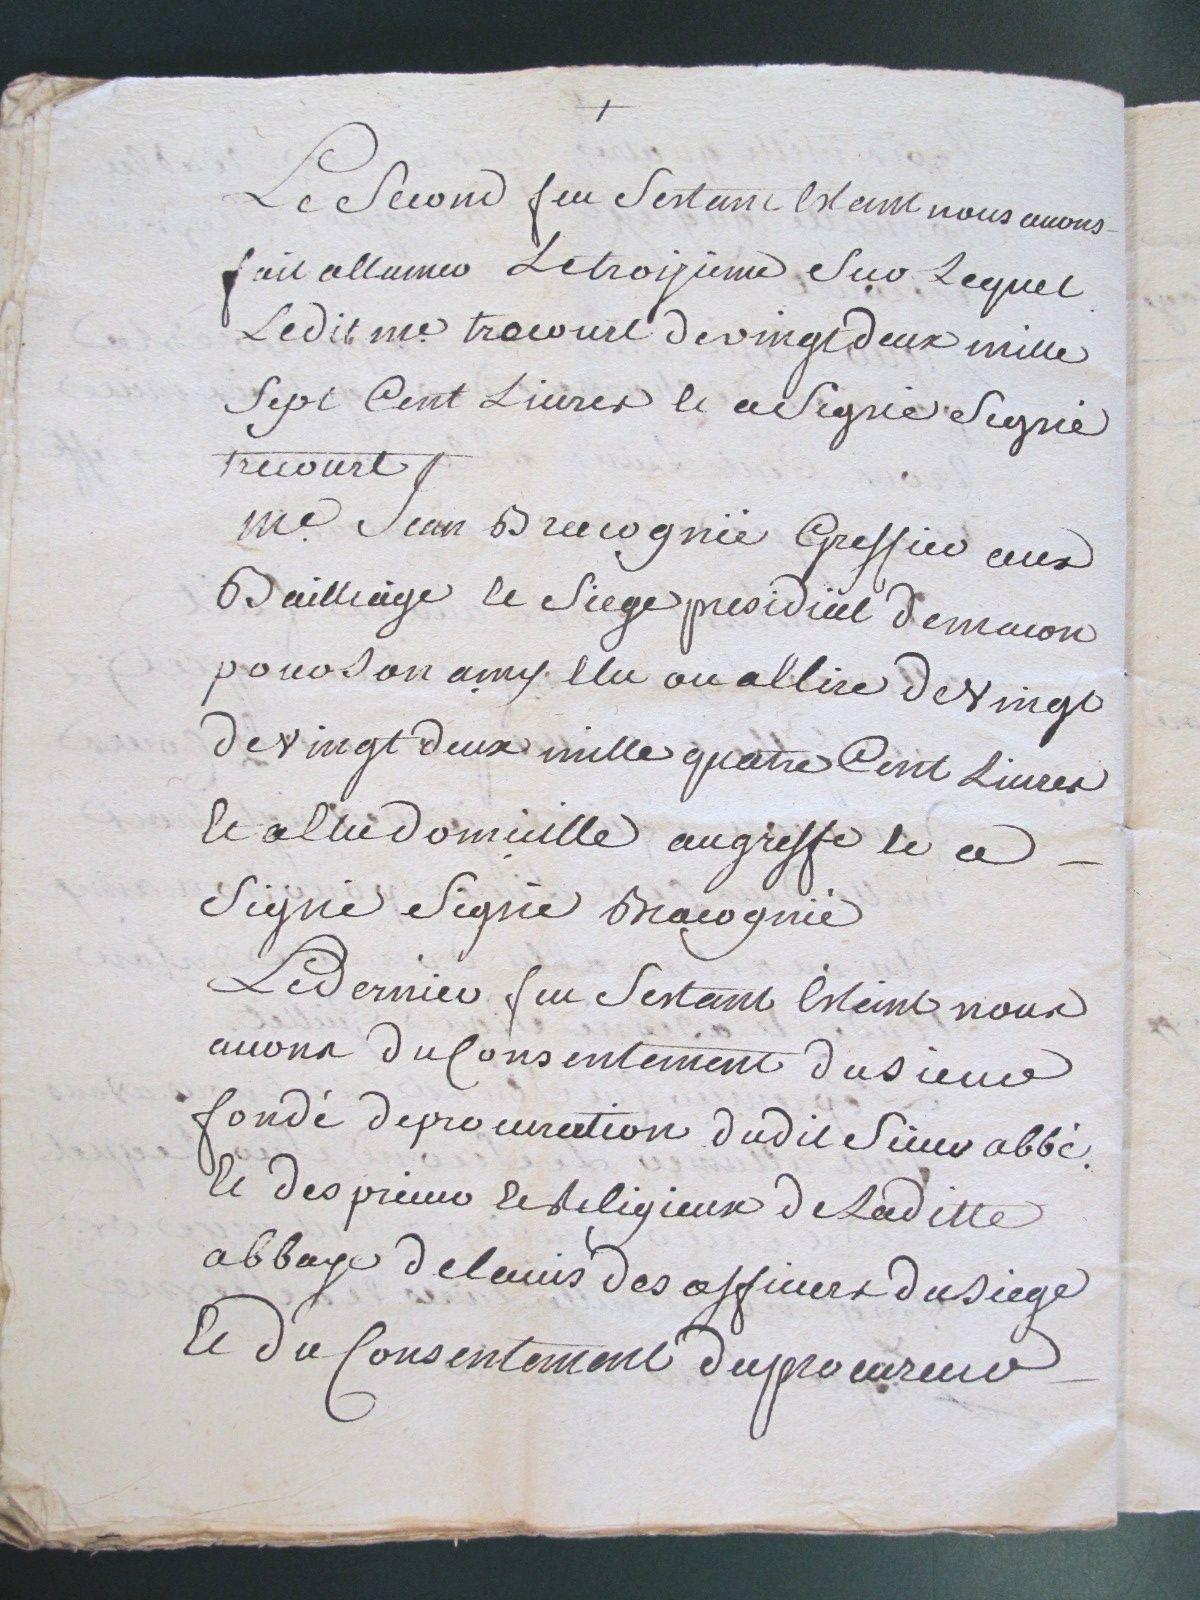 Le Second feu Sestant Estant nous auons
fait allumer Le troizieme Sur Lequel
Ledit me. trecourt de vingt deux mille
Sept Cent Liures et a Signé Signé
trecourt
Me. Jean Bracognié Greffier aux
Bailliage et Siege presidial de macon
pour Son amy Elu ou a Elire de Vingt
de Vingt deux mille quatre Cent Liures
Et a Elu domicille au greffe et a
Signé Signé Bracognié
Le dernier feu Sestant Esteint nous
auons du Consentement du Sieur
fondé de procuration dudit Sieur abbé
Et des prieur et Religieux de Laditte
abbaye de lauis des officiers du Siege
Et du Consentement du procureur